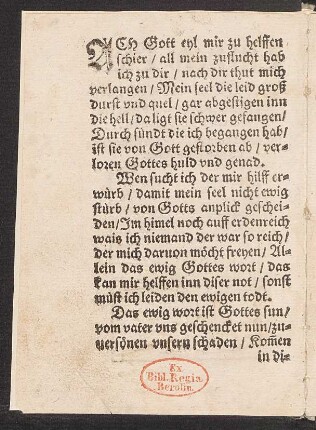 ACH Gott eyl mir zu helffen
schier / all mein zuflucht hab
ich zu dir / nach dir thut mich
verlangen / Mein seel die leid groß
durst vnd quel / gar abgestigen inn
die hell / da ligt sie schwer gefangen /
Durch sündt die ich begangen hab /
ist sie von Gott gestorben ab / ver-
loren Gottes huld vnd genad.
Wen sucht ich der mir hilff er-
würb / damit mein seel nicht ewig
stürb / von Gotts anplick geschei-
den / Im himel noch auff erdenreich
wais ich niemand der war so reich /
der mich daruon möcht freyen / Al-
lein das ewig Gottes wort / das
kan mir helffen inn diser not / sonst
müst ich leiden den ewigen todt.
Das ewig wort ist Gottes sun /
vom vater vns geschencket nun / zu-
uersönen vnsern schaden / Kom̃en
in di-
Ex
Bibl. Regia
Berolin.